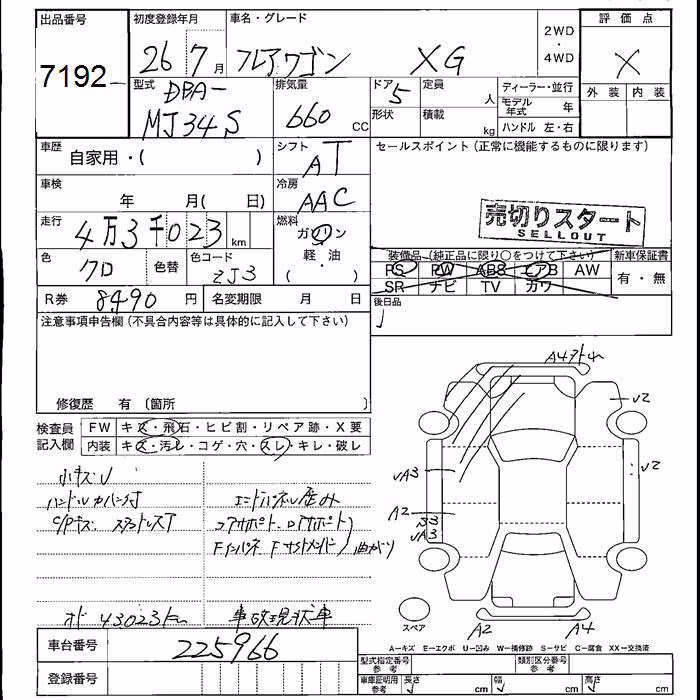 出品番号
7192
初度登録年月
26 7月
車名・グレード
フレアワゴン XG
2WD
・
4WD
評価点
X
外装 内装
型式
DBA-
MJ34S
排気量
660 CC
ドア
5
形状
定員
人
積載
kg
ディーラー・並行
モデル年式 年
ハンドル 左・右
車歴
自家用・( )
シフト
AT
セールスポイント(正常に機能するものに限ります)
車検
年 月( 日)
冷房
AAC
売切りスタート
SELLOUT
走行
4万3千023km
燃料
ガソリン
軽・油
( )
色
クロ
色替
色コード
ZJ3
装備品(純正品に限り○をつけて下さい)
PS PW ABS エアB AW
SR ナビ TV カワ
新車保証書
有・無
R券 8490円
名変期限 月 日
後日品
注意事項申告欄(不具合内容等は具体的に記入して下さい)
修復歴 有 〔箇所 〕
検査員
記入欄
FW キズ・飛石・ヒビ割・リペア跡・X要
内装 キズ・汚レ・コゲ・穴・スレ・キレ・破レ
小キズU
ハンドルカバー付
C/Pキズ スタットレスT
エンドパネル歪み
コアサポート
Fインパネ Fサイドメンバー
曲がり
オド 43023km
事故現状車
A4
U2
UA3
U2
A2
B3
UA3
スペア
A2
A4
車台番号
225966
登録番号
A―キズ E―エクボ U―凹み W―補修跡 S―サビ C―腐食 XX―交換済
型式指定番号
参考
類別区分番号
参考
車庫証明用
参考
長さ cm
幅 cm
高さ cm